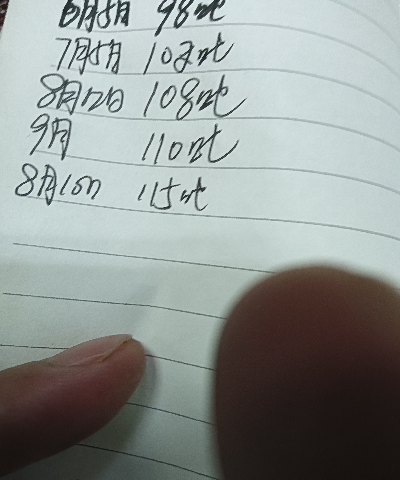 6月5月 98吨
7月5月 103吨
8月12日 108吨
9月 110吨
8月10日 115吨